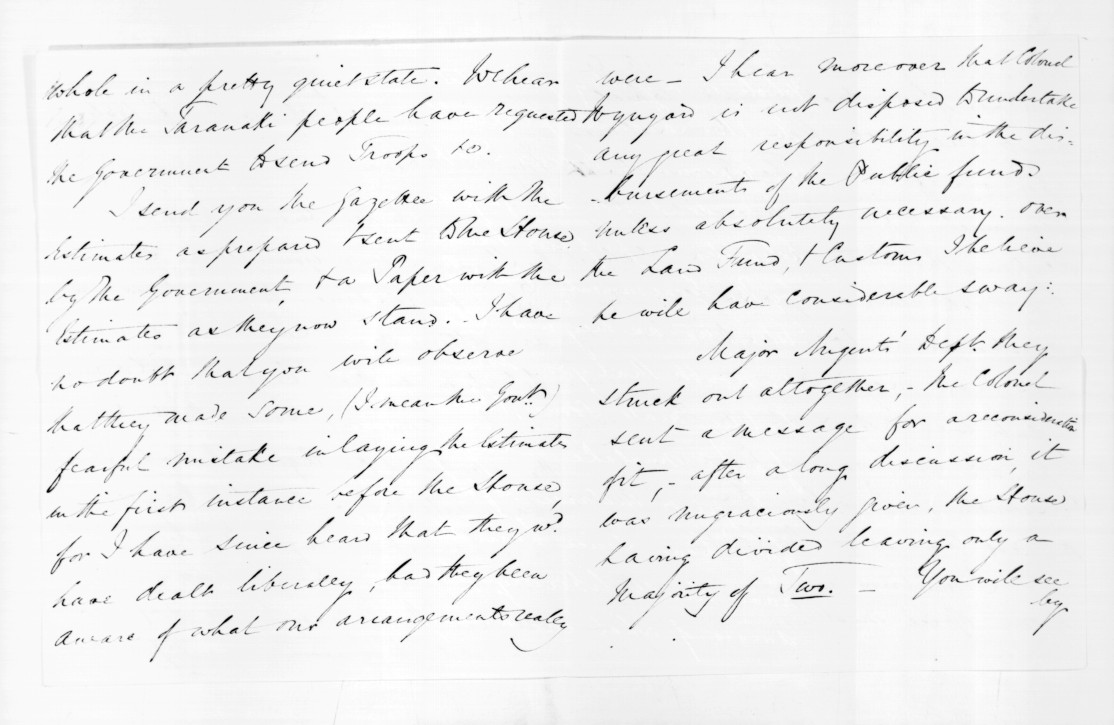 whole in a pretty quiet state. We hear
that the Taranaki people have requested
the Government to send Troops &c.
I send you the Gazettee with the
Estimates as prepared & sent to the House
by the Government, & a Paper with the
Estimates as they now stand. - I have
no doubt that you will observe
that they made some, (I mean the Govt.)
fearful mistake in laying the Estimates
in the first instance before the House,
for I have since heard that they wd.
have dealt liberally, had they been
aware of what our arrangements really
were - I hear moreover that Colonel
Wynyard is not disposed to undertake
any great responsibility in the dis=
-bursements of the Public funds
unless absolutely necessary. over
the Land Fund, & Customs I believe
he will have considerable sway:.
Major Nugents' Dept. they
struck out altogether, - the Colonel
sent a message for a reconsideration
of it, - after a long discussion, it
was ungraciously given, the House
having divided leaving only a
Majority of Two. - You will see
by